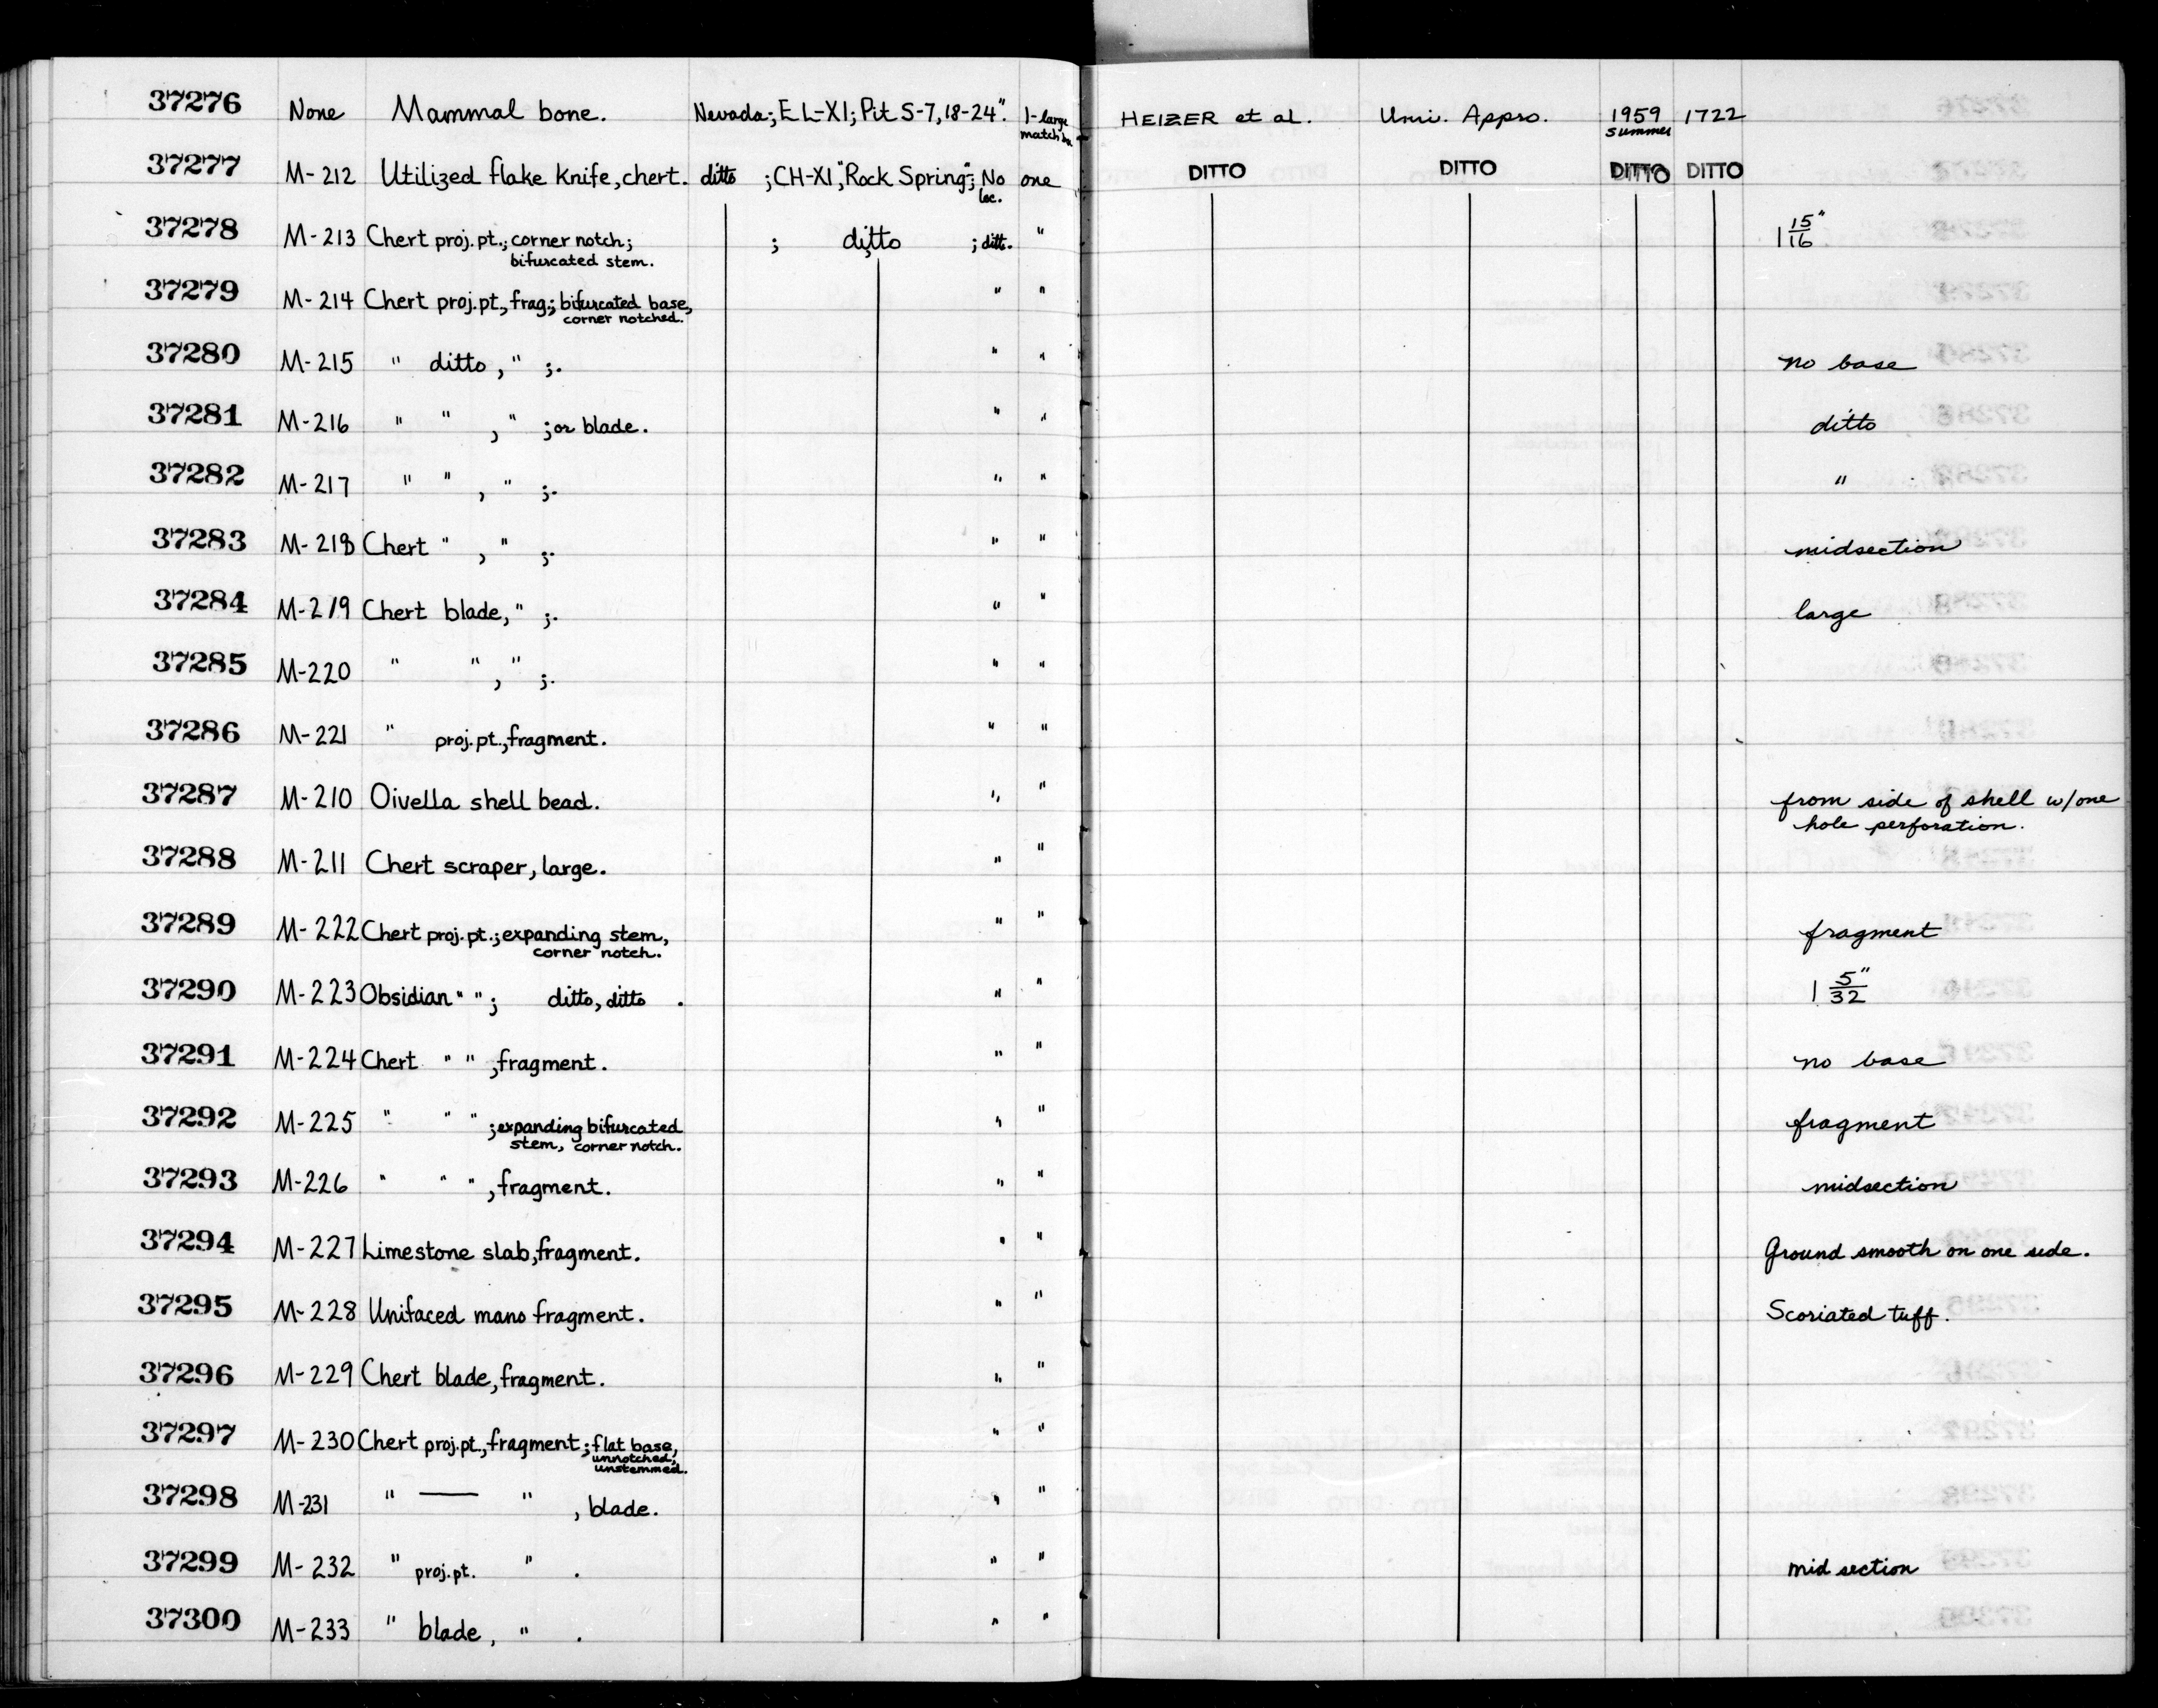 37276 None Mammal bone. Nevada; EL-XI; Pit S-7, 18-24". 1-large match bx. HEIZER et al. Univ. Appro. 1959 summer 1722
37277 M-212 Utilized flake knife, chert. ditto ; CH-XI, "Rock Spring"; No loc. one DITTO DITTO DITTO DITTO
37278 M-213 Chert proj. pt.; corner notch; ; ditto ; ditt. " 1 15/16"
bifurcated stem.
37279 M-214 Chert proj. pt., frag; bifurcated base, " "
corner notched.
37280 M-215 " ditto, " ;. " " no base
37281 M-216 " " , " ; or blade. " " ditto
37282 M-217 " " , " ;. " " "
37283 M-218 Chert " , " ;. " " midsection
37284 M-219 Chert blade, " ;. " " large
37285 M-220 " " , " ;. " "
37286 M-221 " proj. pt., fragment. " "
37287 M-210 Oivella shell bead. " " from side of shell w/one
hole perforation.
37288 M-211 Chert scraper, large. " "
37289 M-222 Chert proj. pt.; expanding stem, " " fragment
corner notch.
37290 M-223 Obsidian " " ; ditto, ditto . " " 1 5/32"
37291 M-224 Chert " " ; fragment. " " no base
37292 M-225 " " " ; expanding bifurcated " " fragment
stem, corner notch.
37293 M-226 " " " , fragment. " " midsection
37294 M-227 Limestone slab, fragment. " " Ground smooth on one side.
37295 M-228 Unifaced mano fragment. " " Scoriated tuff.
37296 M-229 Chert blade, fragment. " "
37297 M-230 Chert proj. pt., fragment; flat base, " "
unnotched,
unstemmed.
37298 M-231 " — " , blade. " "
37299 M-232 " proj. pt. " . " " mid section
37300 M-233 " blade, " . " "